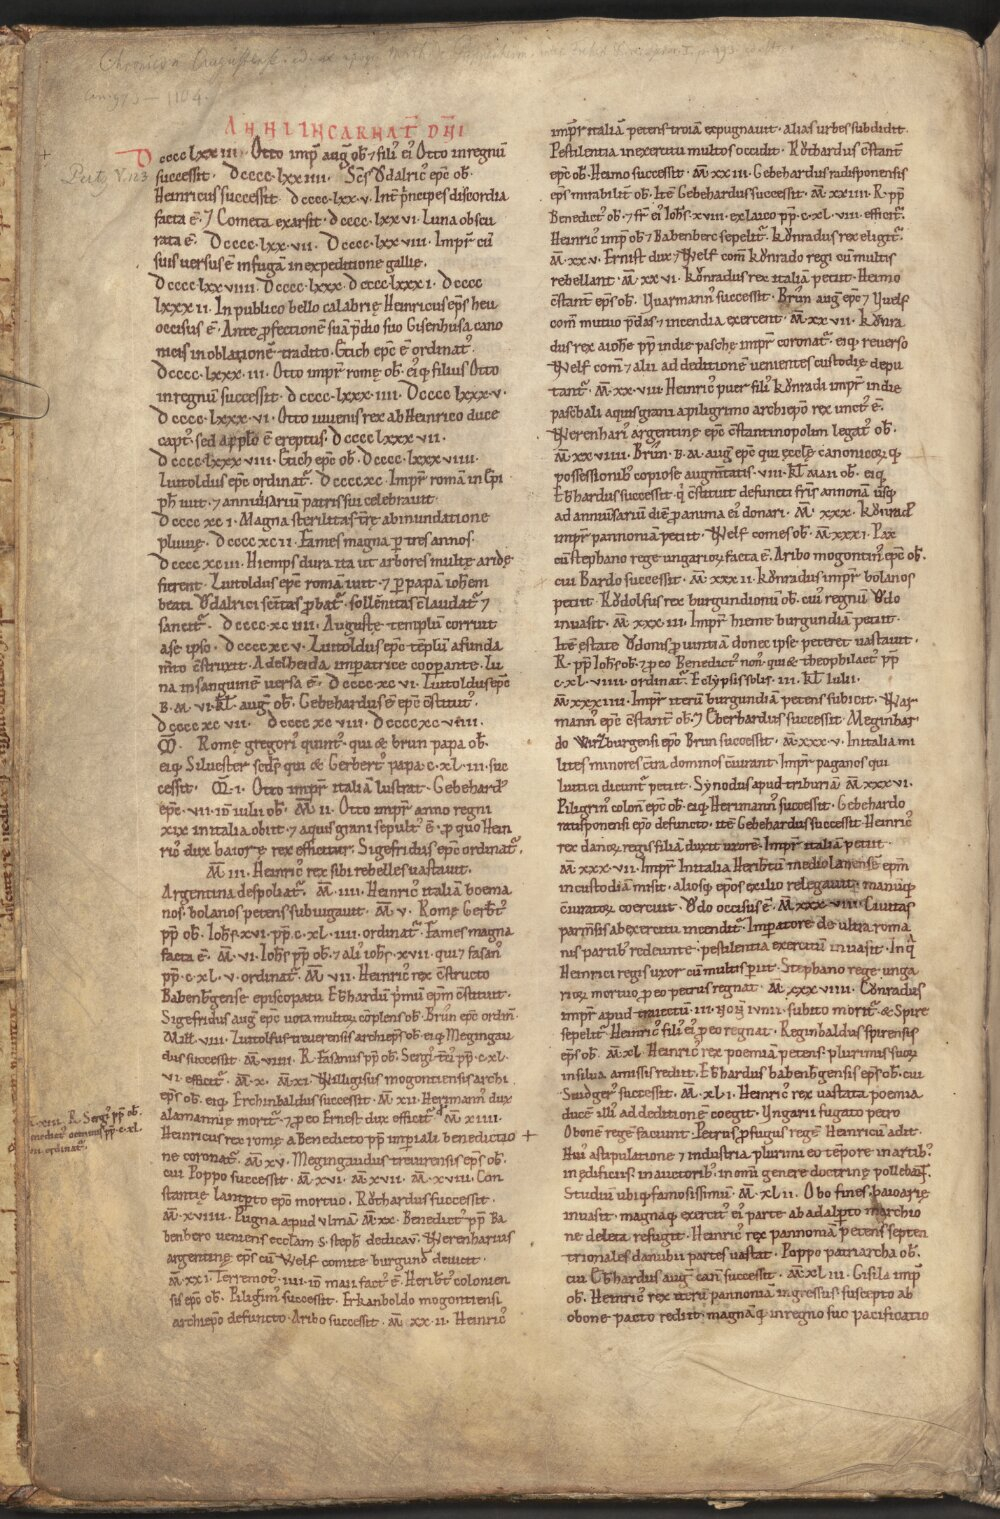 Chronicon Augustense. ed.
an. 973 — 1104.
ANNI INCARNAT̅ DN̅I
Dcccc lxxiii. Otto imp̅r aug̅ ob̅ ⁊ fili᷒ ei᷒ Otto in regnu̅
successit. Dcccc.lxxiiii. Sc̅s Ǒdalric᷒ epc̅ ob̅.
Pertz V. 123
Heinricus successit. dcccc.lxx.v. Int̅ p̅ncipes discordia
facta e̅. ⁊ Cometa exarsit. dcccc.lxxvi. Luna obscu
rata e̅. Dcccc.lxx.vii. Dcccc.lxxviii. Imp̅r cu̅
suis versus e̅ in fuga̅ in expeditione gallie̜.
Dcccc lxxviiii. Dcccc.lxxx. dcccc.lxxxi. Dcccc
lxxxii. In publico bello calabrie̜ Heinricus ep̅s heu
occisus e̅. Ante p̅fectione̅ sua̅ p̅dio suo Gisenhusa cano
nicis in oblatione̅ tradito. Etich epc̅ e̅ ordinat᷒.
Dcccc.lxxx.iii. Otto imp̅r rome̜ ob̅. eiq᷒ filius Otto
in regnu̅ successit. dcccc.lxxx.iiii. Dcccc lxxx v.
Dcccc.lxxx.vi. Otto iuvenis rex ab Heinrico duce
capt᷒. sed a pp̅lo e̅ ereptus. Dcccc lxxx vii.
Dcccc.lxxx viii. Etich epc̅ ob̅. Dcccc.lxxx viiii.
Luitoldus epc̅ ordinat᷒. Dcccc xc. Imp̅r roma̅ in Epi
ph̅ iuit. ⁊ anniu̅sariu̅ patris sui celebrauit.
Dcccc xci. Magna sterilitas t̅re̜ ab inundatione
pluuie̜. Dcccc xcii. Fames magna p̅ tres annos.
Dcccc xciii. Hiemps dura ita ut arbores multe̜ aride̜
fierent. Luitoldus epc̅ roma̅ iuit. ⁊ p̅ papa̅ ioh̅em
beati Ǒdalrici sc̅itas p̅bat᷒. sollennitas e̅ laudat᷒ ⁊
sancit᷒. Dcccc.xciiii. Auguste̜ templu̅ corruit
a se ipso. Dcccc xc v. Luitoldus epc̅ te̅plu̅ a funda
m̅to c̅struxit. Adelheida imp̅atrice coop̅ante. Lu
na in sanguine̅ versa e̅. Dcccc.xc vi. Luitoldus epc̅
B.M. vi. kl̅. aug̅. ob̅. Gebehardus e̅ epc̅ c̅stitut᷒.
Dcccc xc vii. Dcccc xc viii. Dcccc xc viiii.
M̅. Rome̜ gregori᷒ quint᷒. qui & brun papa ob̅.
eiq᷒ Silvester sedis̜ qui & Gerbert᷒ papa.c.xl.iii. suc
cessit. M̅.i. Otto imp̅r italia̅ lustrat. Gebehard᷒
epc̅. vii. id̅ iulii ob̅. M̅ ii. Otto imp̅r anno regni
xix in italia obiit. ⁊ aquis grani sepult᷒ e̅. p̅ quo Hein
ric᷒ dux baiorie̜ rex efficitur. Sigefridus epc̅ ordinat᷒.
M̅ iii. Heinric᷒ rex sibi rebelles uastauit.
Argentina despoliat᷒. M̅. iiii. Heinric᷒ italia̅ boema
nos. bolanos petens subiugauit. M̅. v. Rome̜ Gerb̅t᷒
pp̅ ob̅. Ioh̅s. xvi. pp̅. c.xl.iiii. ordinat᷒. Fames magna
facta e̅. M̅. vi. Ioh̅s pp̅ ob̅. ⁊ ali᷒ ioh̅s. xvii. qui ⁊ fasan᷒
pp̅. c.xl.v. ordinat᷒. M̅. vii. Heinric᷒ rex c̅structo
Babenb̅gense episcopatu Eb̅hardu̅ p̅mu̅ epm̅ c̅stituit.
Sigefridus aug̅ epc̅ uota multor̅ co̅plens ob̅. Bru̅n epc̅ ordin᷒.
Mill̅. viii. Luitolfus treverensis archiep̅s ob̅. eiq᷒ Megingau
dus successit. M̅ viiii. R. Fasanus pp̅ ob̅. Sergi᷒ t̅ci᷒ pp̅. c.xl.
vi. efficit᷒. M̅. x. M̅. xi. Willigisus mogontiensis archi
ep̅s ob̅. eiq᷒ Erchinbaldus successit. M̅ xii. Herimann᷒ dux
alamannie̜ morit᷒. ⁊ p̅ eo Ernest dux efficit᷒. M̅ xiiii.
M̅.xiii. R. Sergi᷒ pp̅ ob̅.
Benedict᷒ octauus pp̅ c.xl.
vii. ordinat᷒.
Heinricus rex rome̜ a Benedicto pp̅ imp̅iali benedictio +
ne coronat᷒. M̅. xv. Megingaudus treuirensis ep̅s ob̅.
cui Poppo successit. M̅. xvi. M̅. xvii. M̅. xviii. Con
stantie̜ lantp̅to ep̅o mortuo. Rǒthardus successit.
M̅. xviiii. Pugna apud ulma̅. M̅. xx. Benedict᷒ pp̅ Ba
benberc ueniens eccl̅am S. steph̅ dedicav̅. Werenharius
argentine̜ ep̅s cu̅ Welf comite burgund᷒ deuicit.
M̅. xxi. Terremot᷒. iiii. id̅ maii fact᷒ e̅. Herib̅t᷒ colonien
sis ep̅c ob̅. Piligrim᷒ successit. Erkanboldo mogontiensi
archiep̅o defuncto. Aribo successit. M̅ xx.ii. Heinric᷒
imp̅r italia̅ petens troia̅ expugnauit. alias urbes subdidit.
Pestilentia in exercitu multos occidit. Rǒthardus c̅stant᷒
epc̅ ob̅. Heimo successit. M̅. xxiii. Gebehardus radisponensis
ep̅s mirabilit̅ ob̅. Ite̅ Gebehardus successit. M̅. xxiiii. R. pp̅
Benedict᷒ ob̅. ⁊ fr̅ ei᷒ Ioh̅s. xviii. ex laico pp̅. c.xl.viii. efficit᷒.
Heinric᷒ imp̅ ob̅ ⁊ Babenberc sepelit᷒. kǒnradus rex eligit᷒.
M̅. xxv. Ernist dux ⁊ Welf com̅ kǒnrado regi cu̅ multis
rebellant. M̅. xx vi. kǒnradus rex italia̅ petiit. Heimo
c̅stant̅ ep̅s ob̅. Warmann᷒ successit. Bru̅n aug̅ epc̅ ⁊ Welf
com̅ mutuo p̅das ⁊ incendia exercent. M̅. xx vii. kǒnra
dus rex a ioh̅e pp̅ in die pasche̜ imp̅r coronat᷒. eiq᷒ reuerso
Welf com̅ ⁊ alii ad deditione̅ uenientes custodie̜ depu
tant᷒. M̅. xx.viii. Heinric᷒ puer fili᷒ kǒnradi imp̅r in die
paschali aquisgrani a piligrimo archiep̅o rex unct᷒ e̅.
Werenhari᷒ argentine̜ epc̅ c̅stantinopolim legat᷒ ob̅.
M̅. xx viiii. Bru̅n. B.M. aug̅ epc̅ qui eccle̜ canonicor̅ q᷒
possessionib᷒ copiose augm̅tatis. viii. kl̅. maii ob̅. eiq᷒
Eb̅hardus successit. q̇ c̅stituit defuncti fr̅is annona̅ usq᷒
ad anniu̅sariu̅ die̅ p̅ anima ei᷒ donari. M̅. xxx. kǒnrad᷒
imp̅r pannonia̅ petiit. Welf comes ob̅. M̅. xxxi. Pax
cu̅ stephano rege ungarior̅ facta e̅. Aribo mogontin᷒ epc̅ ob̅.
cui Bardo successit. M̅. xxxii. kǒnradus imp̅r bolanos
petiit. Rǒdolfus rex burgundionu̅ ob̅. cui᷒ regnu̅ Ǒdo
inuasit. M̅. xxx.iii. Imp̅r hieme burgundia̅ petiit.
Ite̅ estate Ǒdonis p̅uintia̅ donec ipse peteret uastauit.
R. pp̅ Ioh̅s ob̅. ⁊ p̅ eo Benedict᷒ non᷒. qui & theophilact᷒ pp̅
c.xl.viiii. ordinat᷒. Eclypsis solis. iii. kl̅. Iulii.
M̅. xxx iiii. Imp̅r iteru̅ burgundia̅ petens subicit. War
mann᷒ epc̅ c̅stant̅ ob̅. ⁊ Eberhardus successit. Meginhar
do Wirzburgensi ep̅o Brun successit. M̅. xxx.v. In italia mi
lites minores c̅tra dominos c̅iurant. Imp̅r paganos qui
luitici dicunt᷒ petiit. Synodus apud triburia̅. M̅. xxx vi.
Piligrin᷒ colon̅ epc̅ ob̅. eiq᷒ Herimann᷒ successit. Gebehardo
ratisponensi ep̅o defuncto. ite̅ Gebehardus successit. Heinric᷒
rex danor̅ regis filia̅ duxit uxore̅. Imp̅r italia̅ petiit.
M̅. xxx.vii. Imp̅r in italia Herib̅tu̅ mediolanense̅ epm̅
in custodia̅ misit. aliosq᷒ ep̅os exilio relegauit. manu̅q᷒
c̅iurator̅ coercuit. Ǒdo occisus e̅. M̅. xxx.viii. Ciuitas
parm̅sis ab exercitu incendit᷒. Imp̅atore de ultra roma
nis partib᷒ redeunte. pestilentia exercitu̅ inuasit. In q̇
Heinrici regis uxor cu̅ multis p̅iit. Stephano rege unga
rior̅ mortuo p̅ eo petrus regnat. M̅. xxx viiii. Cǒnradus
imp̅r apud traiectu̅. iii. non̅ iunii. subito morit᷒. & Spire
sepelit᷒. Heinric᷒ fili᷒ ei᷒ p̅ eo regnat. Reginbaldus spirensis
ep̅s ob̅. M̅. xl. Heinric᷒ rex poemia̅ petens. plurimis suor̅
in silua amissis rediit. Eb̅hardus babenb̅gensis ep̅s ob̅. cui
Swidger᷒ successit. M̅. xli. Heinric᷒ rex uastata poemia
duce̅ illi᷒ ad deditione̅ coegit. Ungarii fugato petro
Obone̅ rege̅ faciunt. Petrus p̅fugus rege̅ Heinricu̅ adit.
Hui᷒ astipulatione ⁊ industria plurimi eo te̅pore in artib᷒.
in edificiis. in auctorib᷒. in om̅i genere doctrine̜ pollebant̅.
Studiu̅ ubiq᷒ famosissimu̅. M̅. xlii. Obo fines bauoarie̜
inuasit. magnaq᷒ exercit᷒ ei᷒ parte ab adalp̅to marchio
ne deleta refugit. Heinric᷒ rex pannonia̅ petens septen
trionales danubii partes uastat. Poppo patriarcha ob̅.
cui Eb̅hardus aug̅ can̅ successit. M̅. xl iii. Gisila imp̅
ob̅. Heinric᷒ rex iteru̅ pannonia̅ ingressus. suscepto ab
obone pacto rediit. magna̅q᷒ in regno suo pacificatio